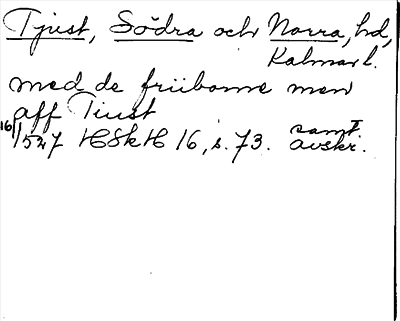 Tjust, Södra och Norra, hd,
Kalmar l.
med de friiborne men
aff Tiust
16/1 1527 HSkH 16, s. 73. samt.
avskr.